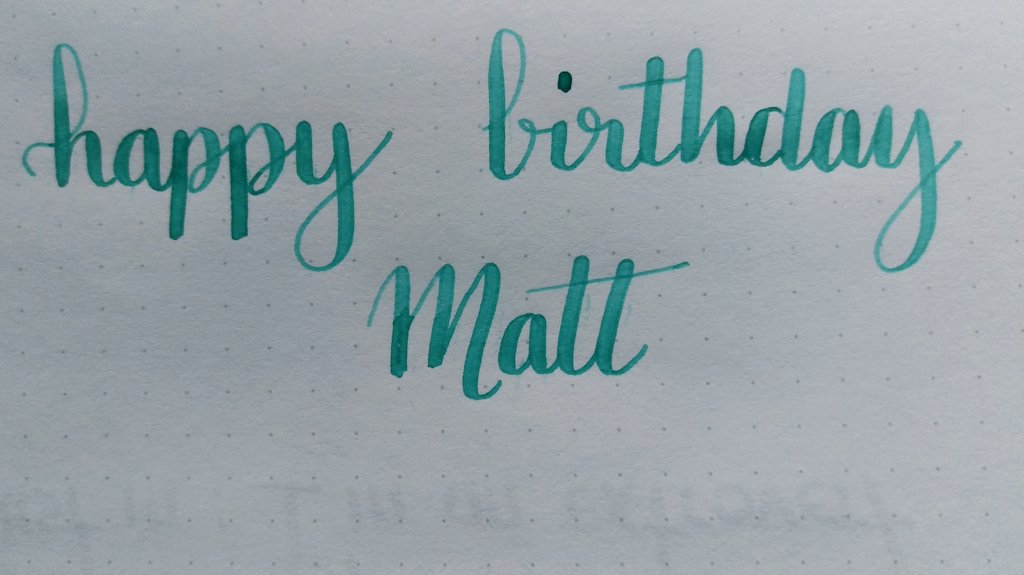 happy birthday
Matt